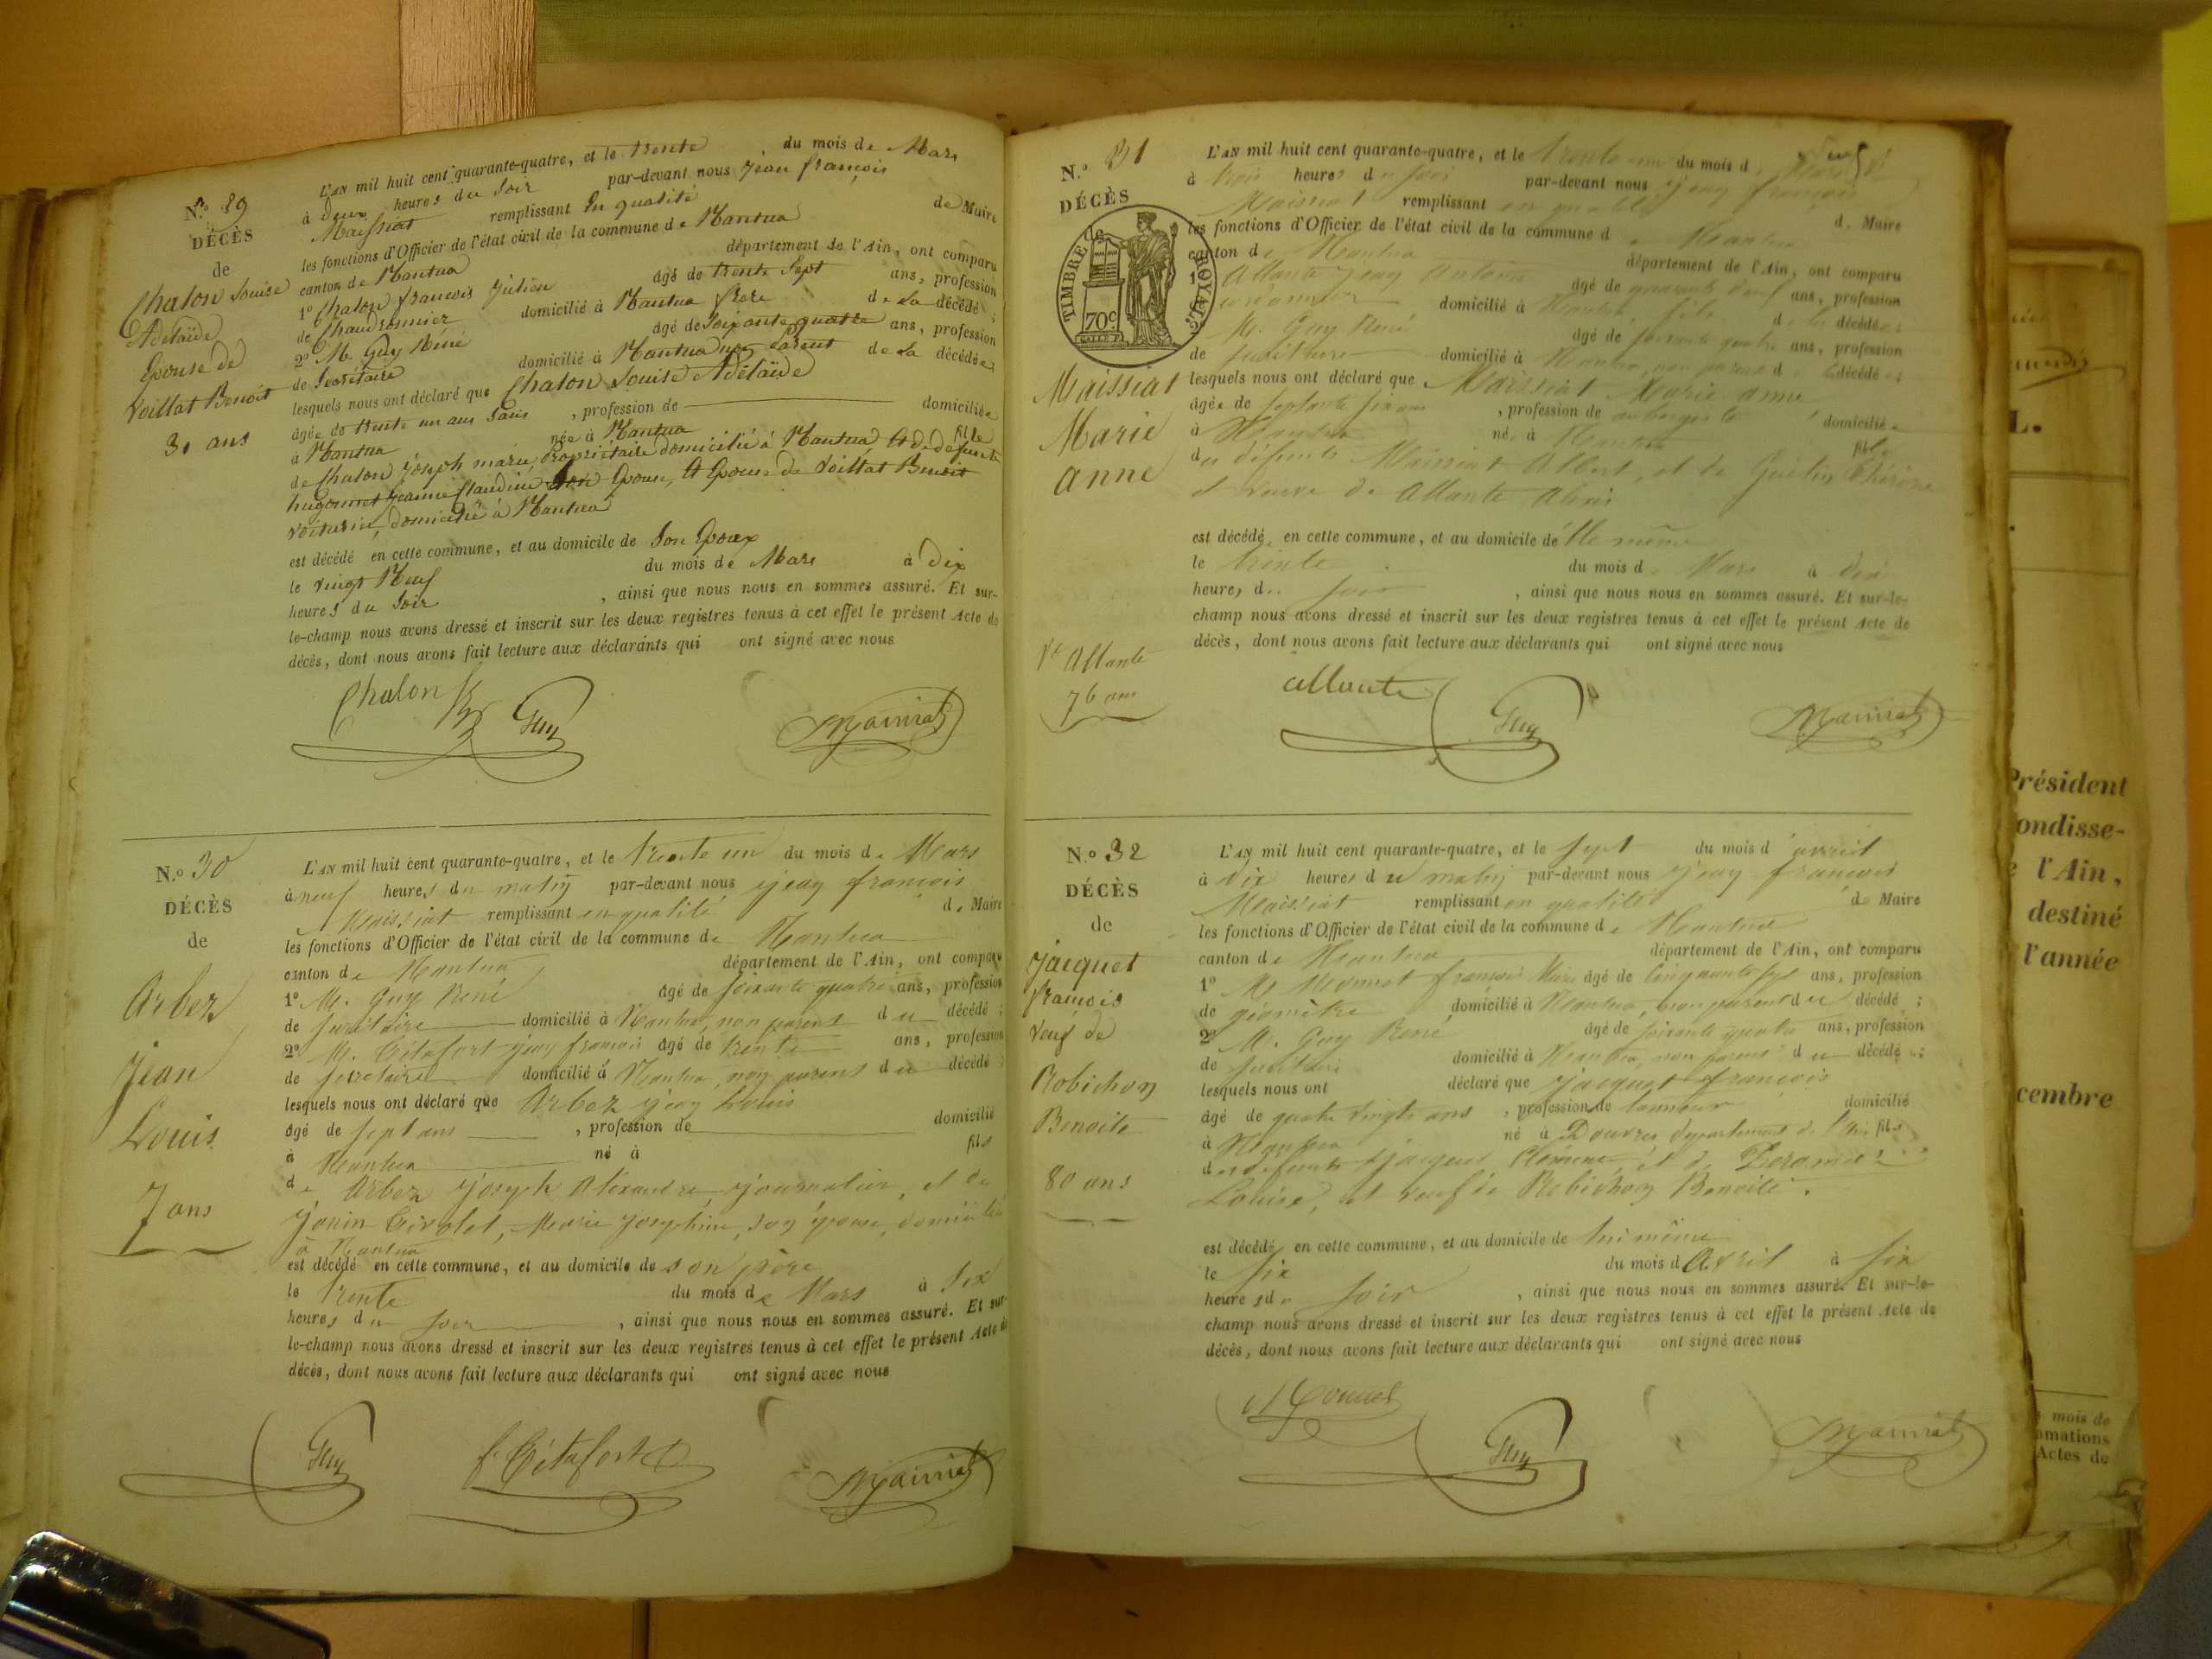 N.º 29
DÉCÈS
de
Chalon Louise
Adelaïde
Epouse de
Voillat Benoit
31 ans
L'AN mil huit cent quarante-quatre, et le trente du mois de Mars
à deux heures du Soir par-devant nous Jean françois
Maissiat remplissant En qualité de Maire
les fonctions d'Officier de l'état civil de la commune de Nantua
canton de Nantua département de l'Ain, ont comparu
1º Chalon francois Julien âgé de trente Sept ans, profession
de Chaudronnier domicilié à Nantua frere de La décédée ;
2º M. Guy René âgé de Soixante quatre ans, profession
de Secrétaire domicilié à Nantua non Parent de La décédée ;
lesquels nous ont déclaré que Chalon Louise Adélaïde
âgée de trente un ans Sans , profession de domiciliée
à Nantua née à Nantua fille
de Chalon Joseph marie, Propriétaire domicilié à Nantua, Et de défunte
hugonnet Jeanne Claudine Son Epouse, Et Epouse de Voillat Benoit
voiturier, domicilié à Nantua
est décédé en cette commune, et au domicile de Son Epoux
le vingt Neuf du mois de Mars à Dix
heures du Soir , ainsi que nous nous en sommes assuré. Et sur-
le-champ nous avons dressé et inscrit sur les deux registres tenus à cet effet le présent Acte de
décès, dont nous avons fait lecture aux déclarants qui ont signé avec nous
Chalon Guy Maissiat
N.º 30
DÉCÈS
de
Arbez
Jean
Louis
7 ans
L'AN mil huit cent quarante-quatre, et le trente un du mois de Mars
à neuf heures du matin par-devant nous Jean françois
Maissiat remplissant en qualité de Maire
les fonctions d'Officier de l'état civil de la commune de Nantua
canton de Nantua département de l'Ain, ont comparu
1º M. Guy René âgé de soixante quatre ans, profession
de secrétaire domicilié à Nantua, non parent du décédé ;
2º M. Crétafort Jean françois âgé de trente ans, profession
de secretaire domicilié à Nantua, non parent du décédé ;
lesquels nous ont déclaré que Arbez Jean Louis
âgé de sept ans , profession de domicilié
à Nantua né à fils
de Arbez Joseph Alexandre, journalier, et de
Marie Josephine, son épouse, domiciliés
à Nantua
est décédé en cette commune, et au domicile de son père
le trente du mois de Mars à six
heures du soir , ainsi que nous nous en sommes assuré. Et sur-
le-champ nous avons dressé et inscrit sur les deux registres tenus à cet effet le présent Acte de
décès, dont nous avons fait lecture aux déclarants qui ont signé avec nous
Guy f. Crétafort Maissiat
N.º 31
DÉCÈS
de
TIMBRE ROYAL
70c
Maissiat
Marie
anne
Ve Allante
76 ans
L'AN mil huit cent quarante-quatre, et le trente un du mois de Mars
à trois heures du soir par-devant nous Jean françois
Maissiat remplissant en qualité de Maire
les fonctions d'Officier de l'état civil de la commune de Nantua
canton de Nantua département de l'Ain, ont comparu
1º Allante Jean Antoine âgé de quarante neuf ans, profession
de cordonnier domicilié à Nantua, fils de la décédée ;
M. Guy René âgé de soixante quatre ans, profession
de secrétaire domicilié à Nantua, non parent de la décédée ;
lesquels nous ont déclaré que Maissiat Marie anne
âgée de septante six ans , profession de aubergiste domiciliée
à Nantua née à Nantua fille
des défunts Maissiat Albert, et de Thérèze
et veuve de Allante Alexis
est décédée en cette commune, et au domicile de elle même
le trente du mois de Mars à dix
heures du soir , ainsi que nous nous en sommes assuré. Et sur-le-
champ nous avons dressé et inscrit sur les deux registres tenus à cet effet le présent Acte de
décès, dont nous avons fait lecture aux déclarants qui ont signé avec nous
allante Guy Maissiat
N.º 32
DÉCÈS
de
Jacquet
françois
veuf de
Robichon
Benoite
80 ans
L'AN mil huit cent quarante-quatre, et le sept du mois d'avril
à dix heures du matin par-devant nous Jean françois
Maissiat remplissant en qualité de Maire
les fonctions d'Officier de l'état civil de la commune de Nantua
canton de Nantua département de l'Ain, ont comparu
1º M. Monnet françois Marie âgé de cinquante sept ans, profession
de géomètre domicilié à Nantua, non parent du décédé ;
2º M. Guy René âgé de soixante quatre ans, profession
de secrétaire domicilié à Nantua, non parent du décédé ;
lesquels nous ont déclaré que Jacquet françois
âgé de quatre vingts ans , profession de tanneur domicilié
à Nantua né à Douvres département de l'Ain fils
des défunts Jacquet et de
Louise, et veuf de Robichon Benoite.
est décédé en cette commune, et au domicile de lui même
le six du mois d'Avril à six
heures du soir , ainsi que nous nous en sommes assuré. Et sur-le-
champ nous avons dressé et inscrit sur les deux registres tenus à cet effet le présent Acte de
décès, dont nous avons fait lecture aux déclarants qui ont signé avec nous
Monnet Guy Maissiat
L.
Président
ondisse-
l'Ain,
destiné
l'année
cembre
mois de
mations
Actes de